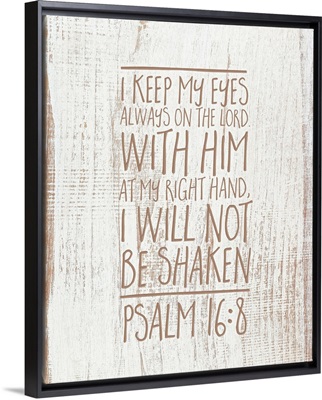 I KEEP MY EYES
ALWAYS ON THE LORD.
WITH HIM
AT MY RIGHT HAND,
I WILL NOT
BE SHAKEN
PSALM 16:8